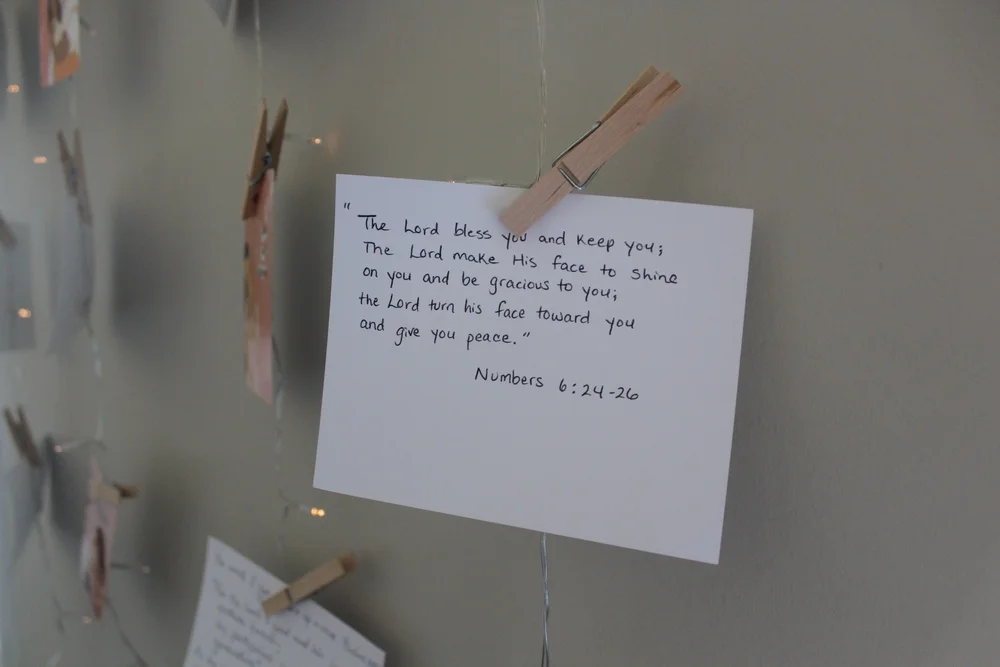 "The Lord bless you and keep you;
The Lord make His face to shine
on you and be gracious to you;
the Lord turn his face toward you
and give you peace."
Numbers 6:24-26